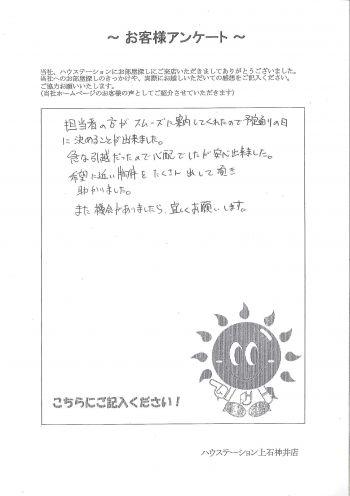 ～ お客様アンケート ～
当社、ハウステーションにお部屋探しにご来店いただきましてありがとうございました。
当社へのお部屋探しのきっかけや、実際にお越しいただいての感想をご記入ください。
ご協力お願いいたします。
(当社ホームページのお客様の声としてご紹介させていただきます)
担当者の方がスムーズに案内してくれたので予定通りの日
に決めることが出来ました。
急な引越だったので心配でしたが安心出来ました。
希望に近い物件をたくさん出して頂き
助かりました。
また機会がありましたら、宜しくお願いします。
こちらにご記入ください！
ハウステーション上石神井店